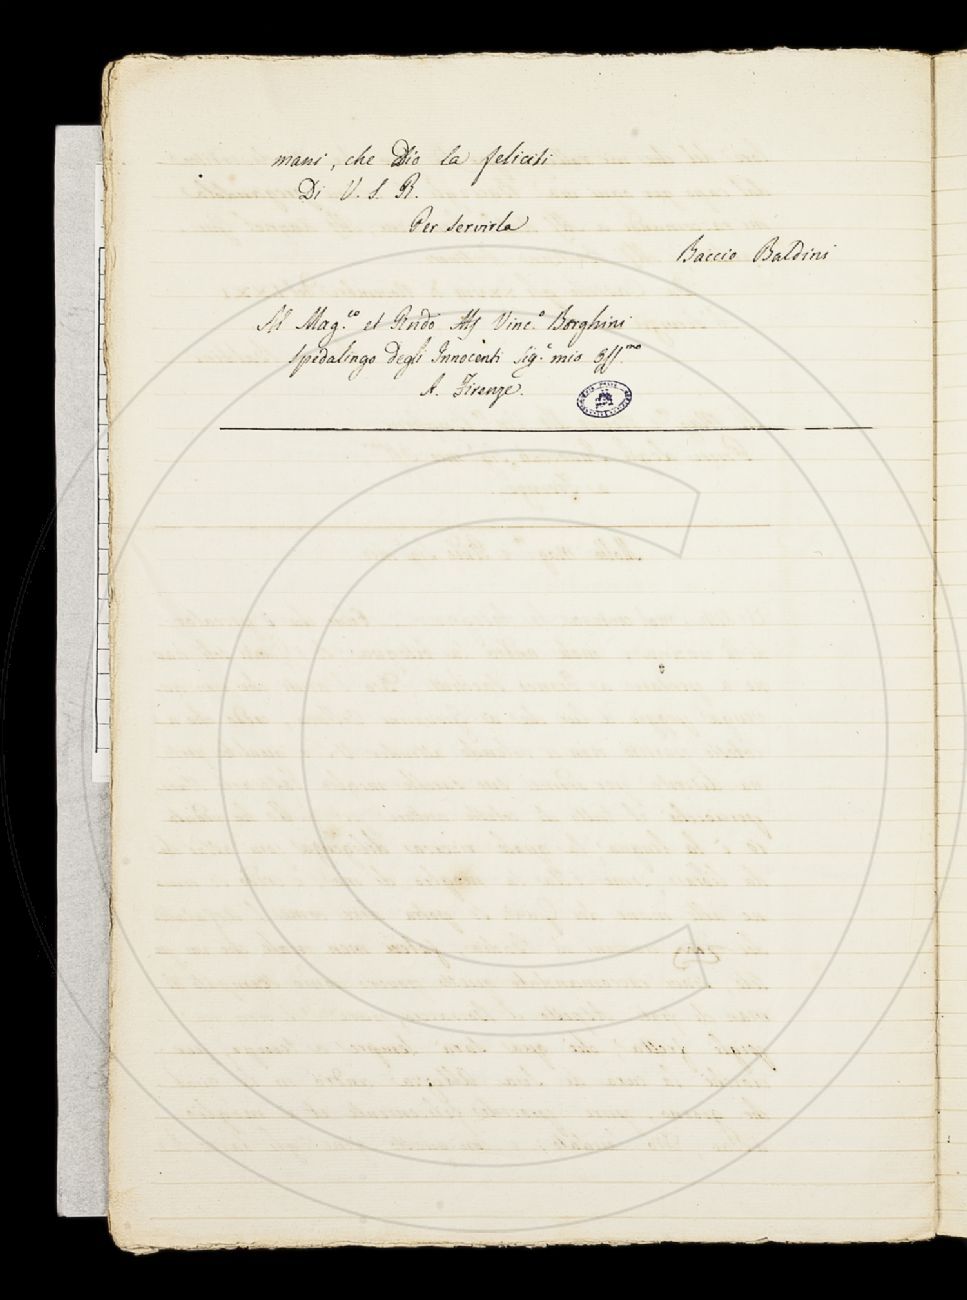 mani, che Dio la feliciti
Di V. S. R.
Per servirla
Baccio Baldini
Al Mag.co et Rndo Ms Vinc.o Borghini
Spedalingo degli Innocenti Sig.r mio Oss.mo
A. Firenze.